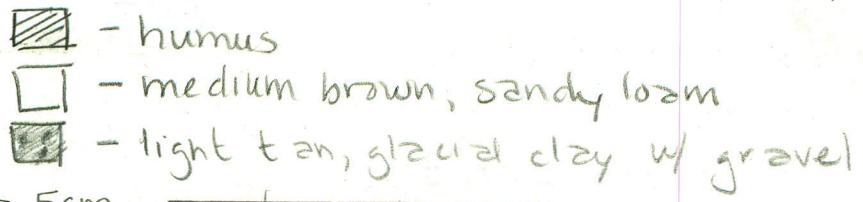 - humus
- medium brown, sandy loam
- light tan, glacial clay w/ gravel